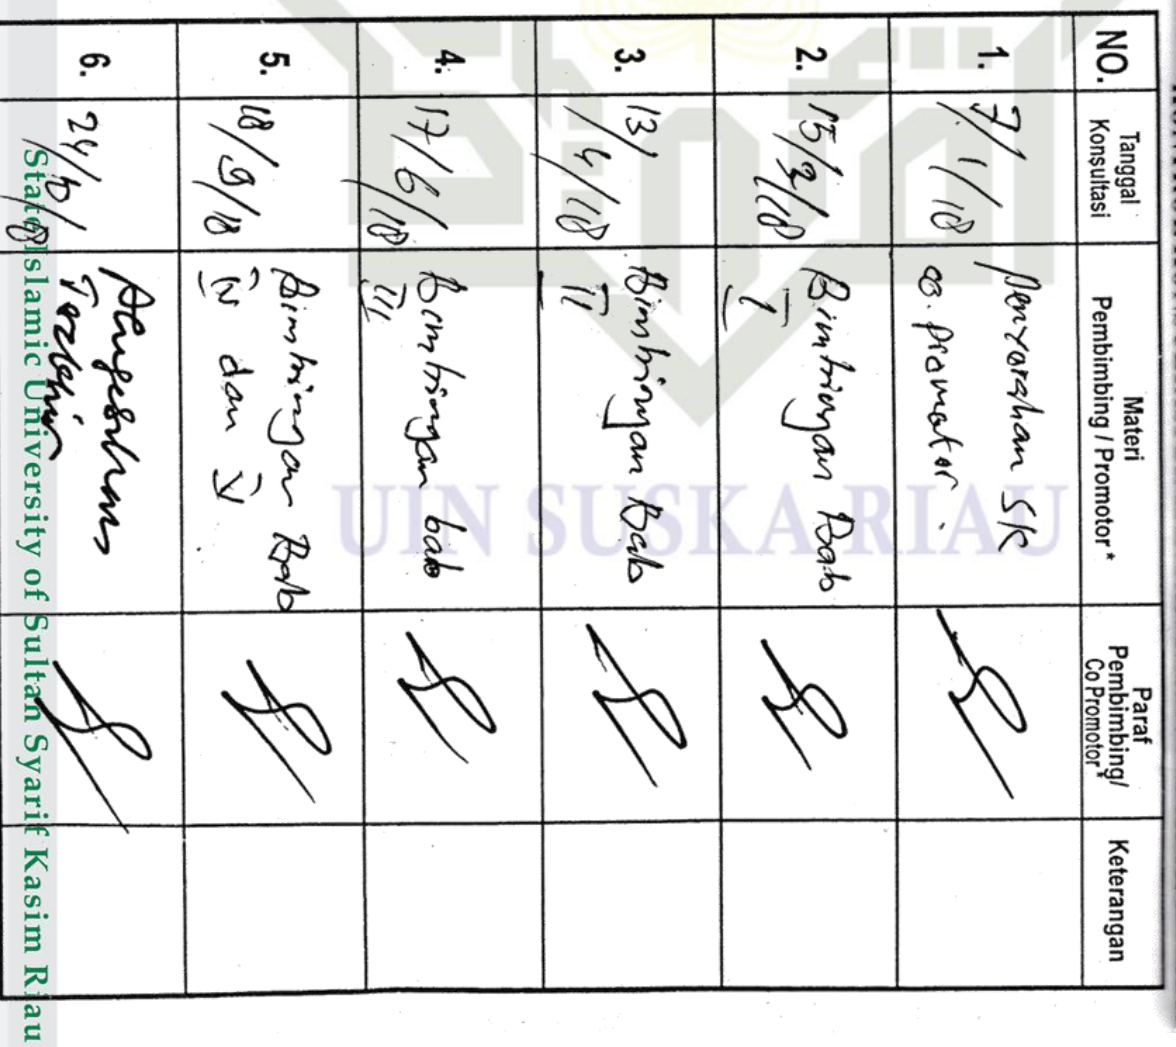 NO.
Tanggal
Konsultasi
Materi
Pembimbing / Promotor *
Paraf
Pembimbing/
Co Promotor*
Keterangan
1.
7/1/18
Penyerahan SK
co. promotor.
2.
15/2/18
Bimbingan Bab
I
3.
13/4/18
Bimbingan Bab
II
4.
17/6/18
Bimbingan bab
III
5.
18/9/18
Bimbingan Bab
IV dan V
6.
24/10/18
UIN SUSKA RIAU
State Islamic University of Sultan Syarif Kasim Riau